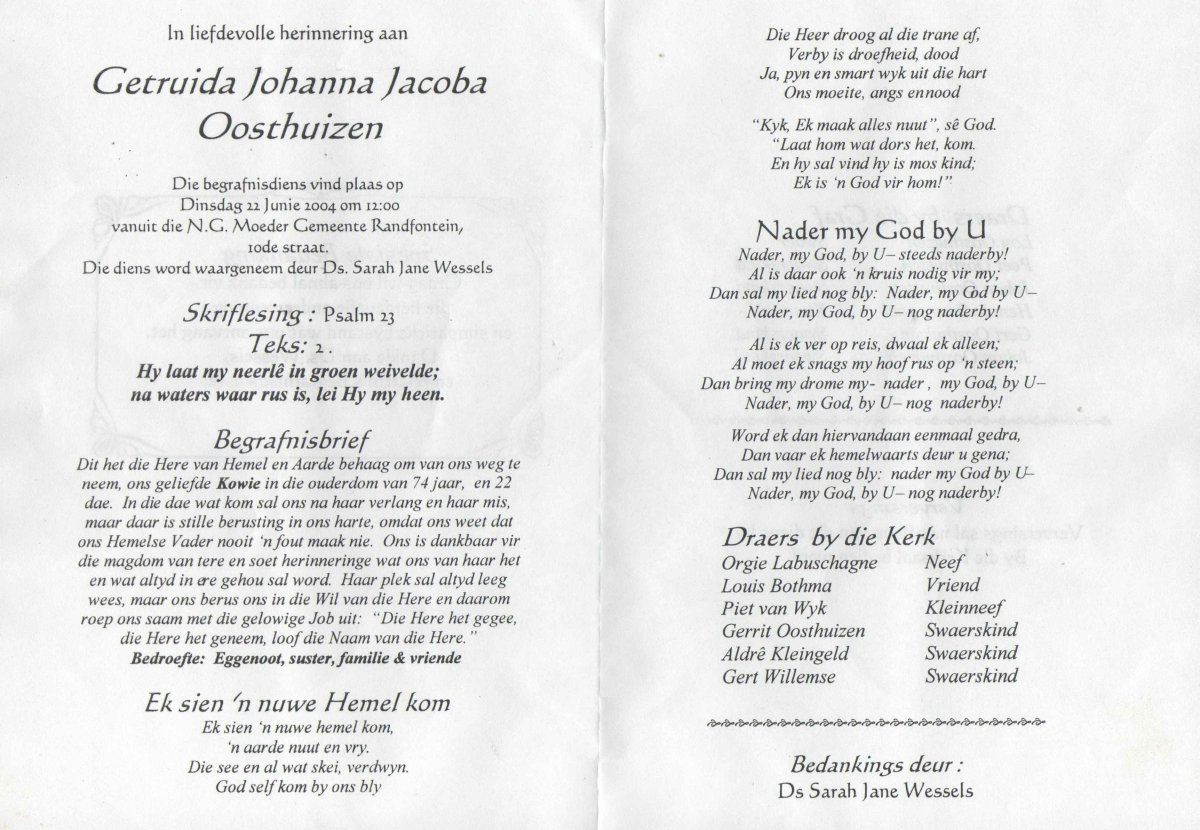 In liefdevolle herinnering aan
Getruida Johanna Jacoba
Oosthuizen
Die begrafnisdiens vind plaas op
Dinsdag 22 Junie 2004 om 12:00
vanuit die N.G. Moeder Gemeente Randfontein,
10de straat.
Die diens word waargeneem deur Ds. Sarah Jane Wessels
Skriflesing : Psalm 23
Teks: 2 .
Hy laat my neerlê in groen weivelde;
na waters waar rus is, lei Hy my heen.
Begrafnisbrief
Dit het die Here van Hemel en Aarde behaag om van ons weg te
neem, ons geliefde Kowie in die ouderdom van 74 jaar, en 22
dae. In die dae wat kom sal ons na haar verlang en haar mis,
maar daar is stille berusting in ons harte, omdat ons weet dat
ons Hemelse Vader nooit 'n fout maak nie. Ons is dankbaar vir
die magdom van tere en soet herinneringe wat ons van haar het
en wat altyd in ere gehou sal word. Haar plek sal altyd leeg
wees, maar ons berus ons in die Wil van die Here en daarom
roep ons saam met die gelowige Job uit: "Die Here het gegee,
die Here het geneem, loof die Naam van die Here."
Bedroefte: Eggenoot, suster, familie & vriende
Ek sien 'n nuwe Hemel kom
Ek sien 'n nuwe hemel kom,
'n aarde nuut en vry.
Die see en al wat skei, verdwyn.
God self kom by ons bly
Die Heer droog al die trane af,
Verby is droefheid, dood
Ja, pyn en smart wyk uit die hart
Ons moeite, angs en nood
"Kyk, Ek maak alles nuut", sê God.
"Laat hom wat dors het, kom.
En hy sal vind hy is mos kind;
Ek is 'n God vir hom!"
Nader my God by U
Nader, my God, by U– steeds naderby!
Al is daar ook 'n kruis nodig vir my;
Dan sal my lied nog bly: Nader, my God by U–
Nader, my God, by U– nog naderby!
Al is ek ver op reis, dwaal ek alleen;
Al moet ek snags my hoof rus op 'n steen;
Dan bring my drome my- nader , my God, by U–
Nader, my God, by U– nog naderby!
Word ek dan hiervandaan eenmaal gedra,
Dan vaar ek hemelwaarts deur u gena;
Dan sal my lied nog bly: nader my God by U–
Nader, my God, by U– nog naderby!
Draers by die Kerk
Orgie Labuschagne Neef
Louis Bothma Vriend
Piet van Wyk Kleinneef
Gerrit Oosthuizen Swaerskind
Aldrê Kleingeld Swaerskind
Gert Willemse Swaerskind
Bedankings deur :
Ds Sarah Jane Wessels